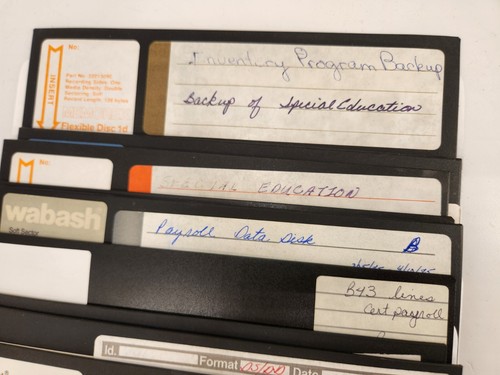 No:
INSERT
Recording Verified: One
Media Density: Double
Sectoring: Soft
Record Length: 128 bytes
Flexible Disc 1d
Inventory Program Backup
Backup of Special Education
No:
SPECIAL EDUCATION
wabash
Soft Sector
Payroll Data Desk B
B43 lines
Cert payroll
Id.
Format
Date